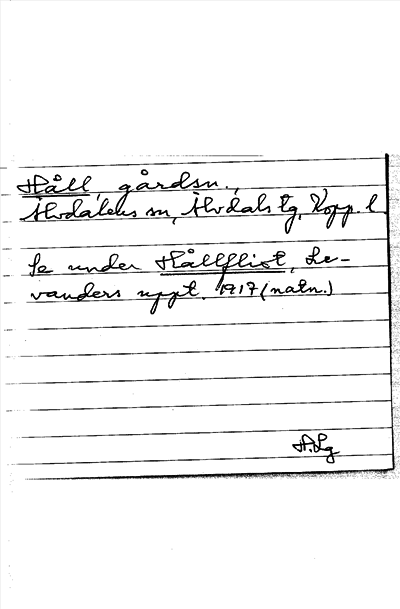 Håll, gårdsn.,
Älvdalens sn, Älvdals tg, Kopp. l.
Se under Hållflist, Le-
vanders uppt. 1917 (natn.)
H.Lg